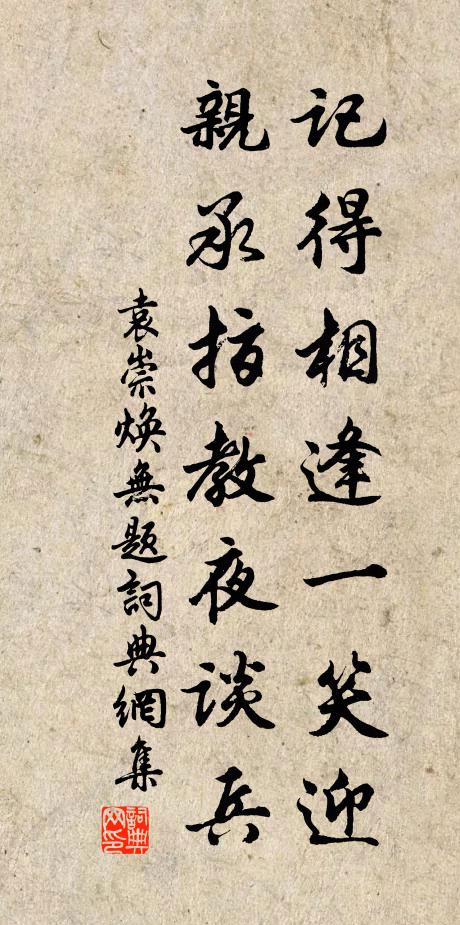 記得相逢一笑迎
親承指教夜談兵
袁崇煥無題詞典網集
詞典網印